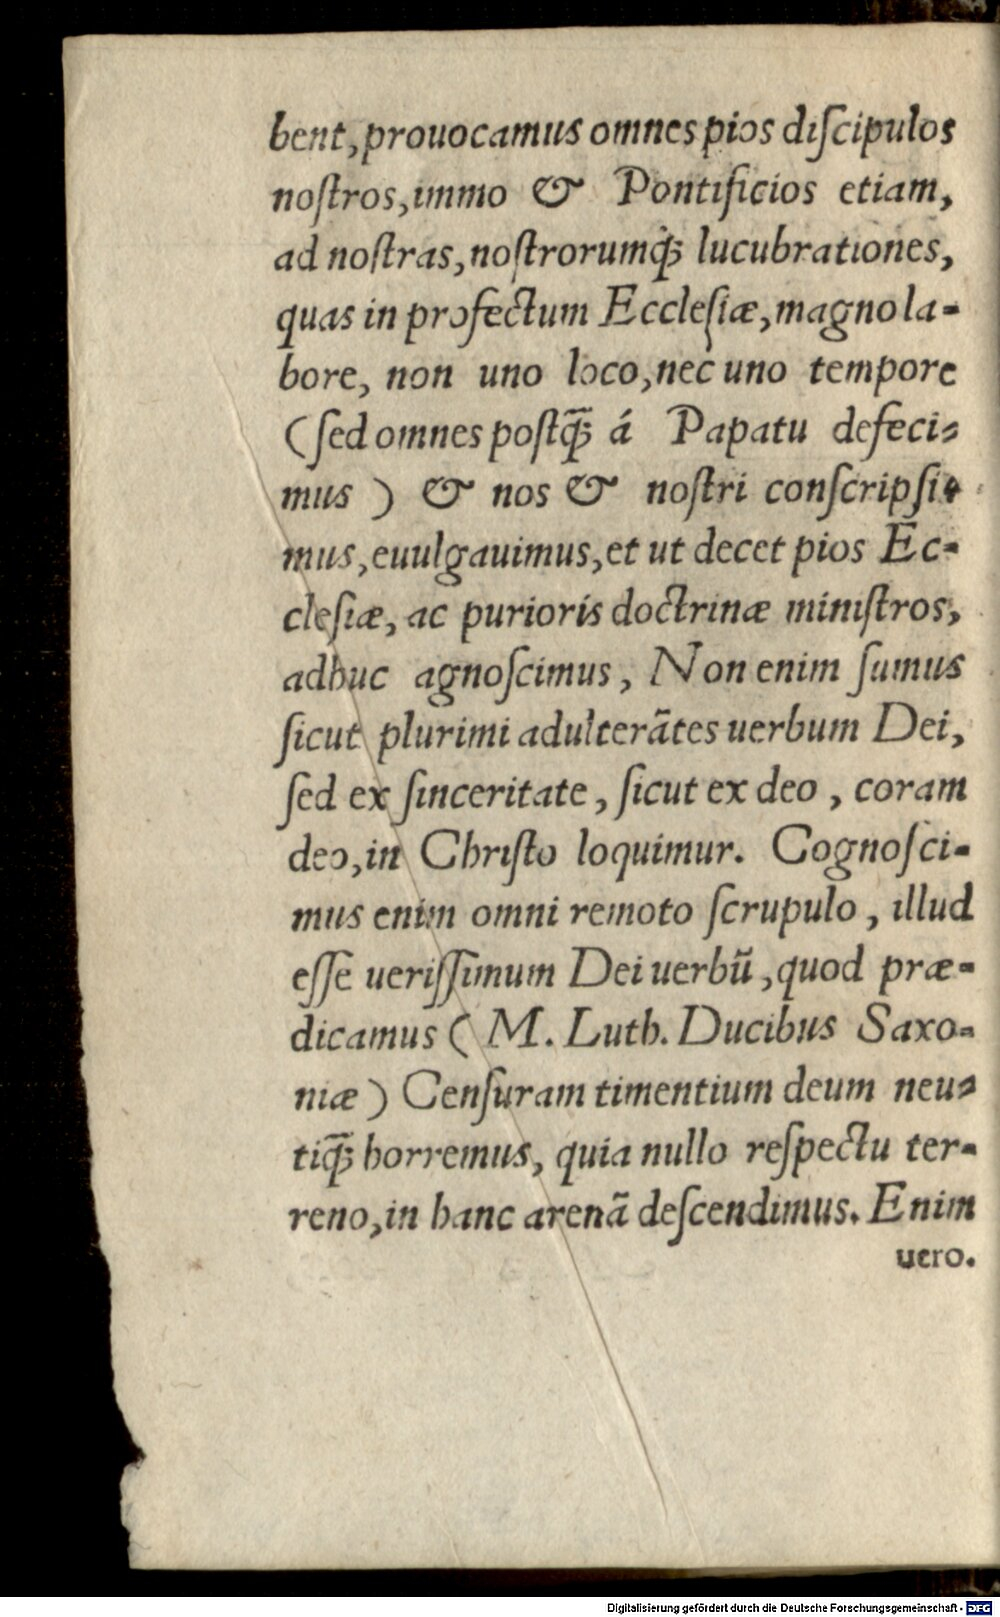 bent, prouocamus omnes pios diſcipulos
noſtros, immo & Pontificios etiam,
ad noſtras, noſtrorumq́ꝫ lucubrationes,
quas in profectum Eccleſiæ, magno la-
bore, non uno loco, nec uno tempore
(ſed omnes poſtq̃ꝫ á Papatu defeci-
mus) & nos & noſtri conſcripſi-
mus, euulgauimus, et ut decet pios Ec-
cleſiæ, ac purioris doctrinæ miniſtros,
adhuc agnoſcimus, Non enim ſumus
ſicut plurimi adulterãtes uerbum Dei,
ſed ex ſinceritate, ſicut ex deo, coram
deo, in Chriſto loquimur. Cognoſci-
mus enim omni remoto ſcrupulo, illud
eſſe ueriſſimum Dei uerbũ, quod præ-
dicamus (M. Luth. Ducibus Saxo-
niæ) Cenſuram timentium deum neu-
tiq̃ꝫ horremus, quia nullo reſpectu ter-
reno, in hanc arenã deſcendimus. Enim
uero.
Digitalisierung gefördert durch die Deutsche Forschungsgemeinschaft - DFG